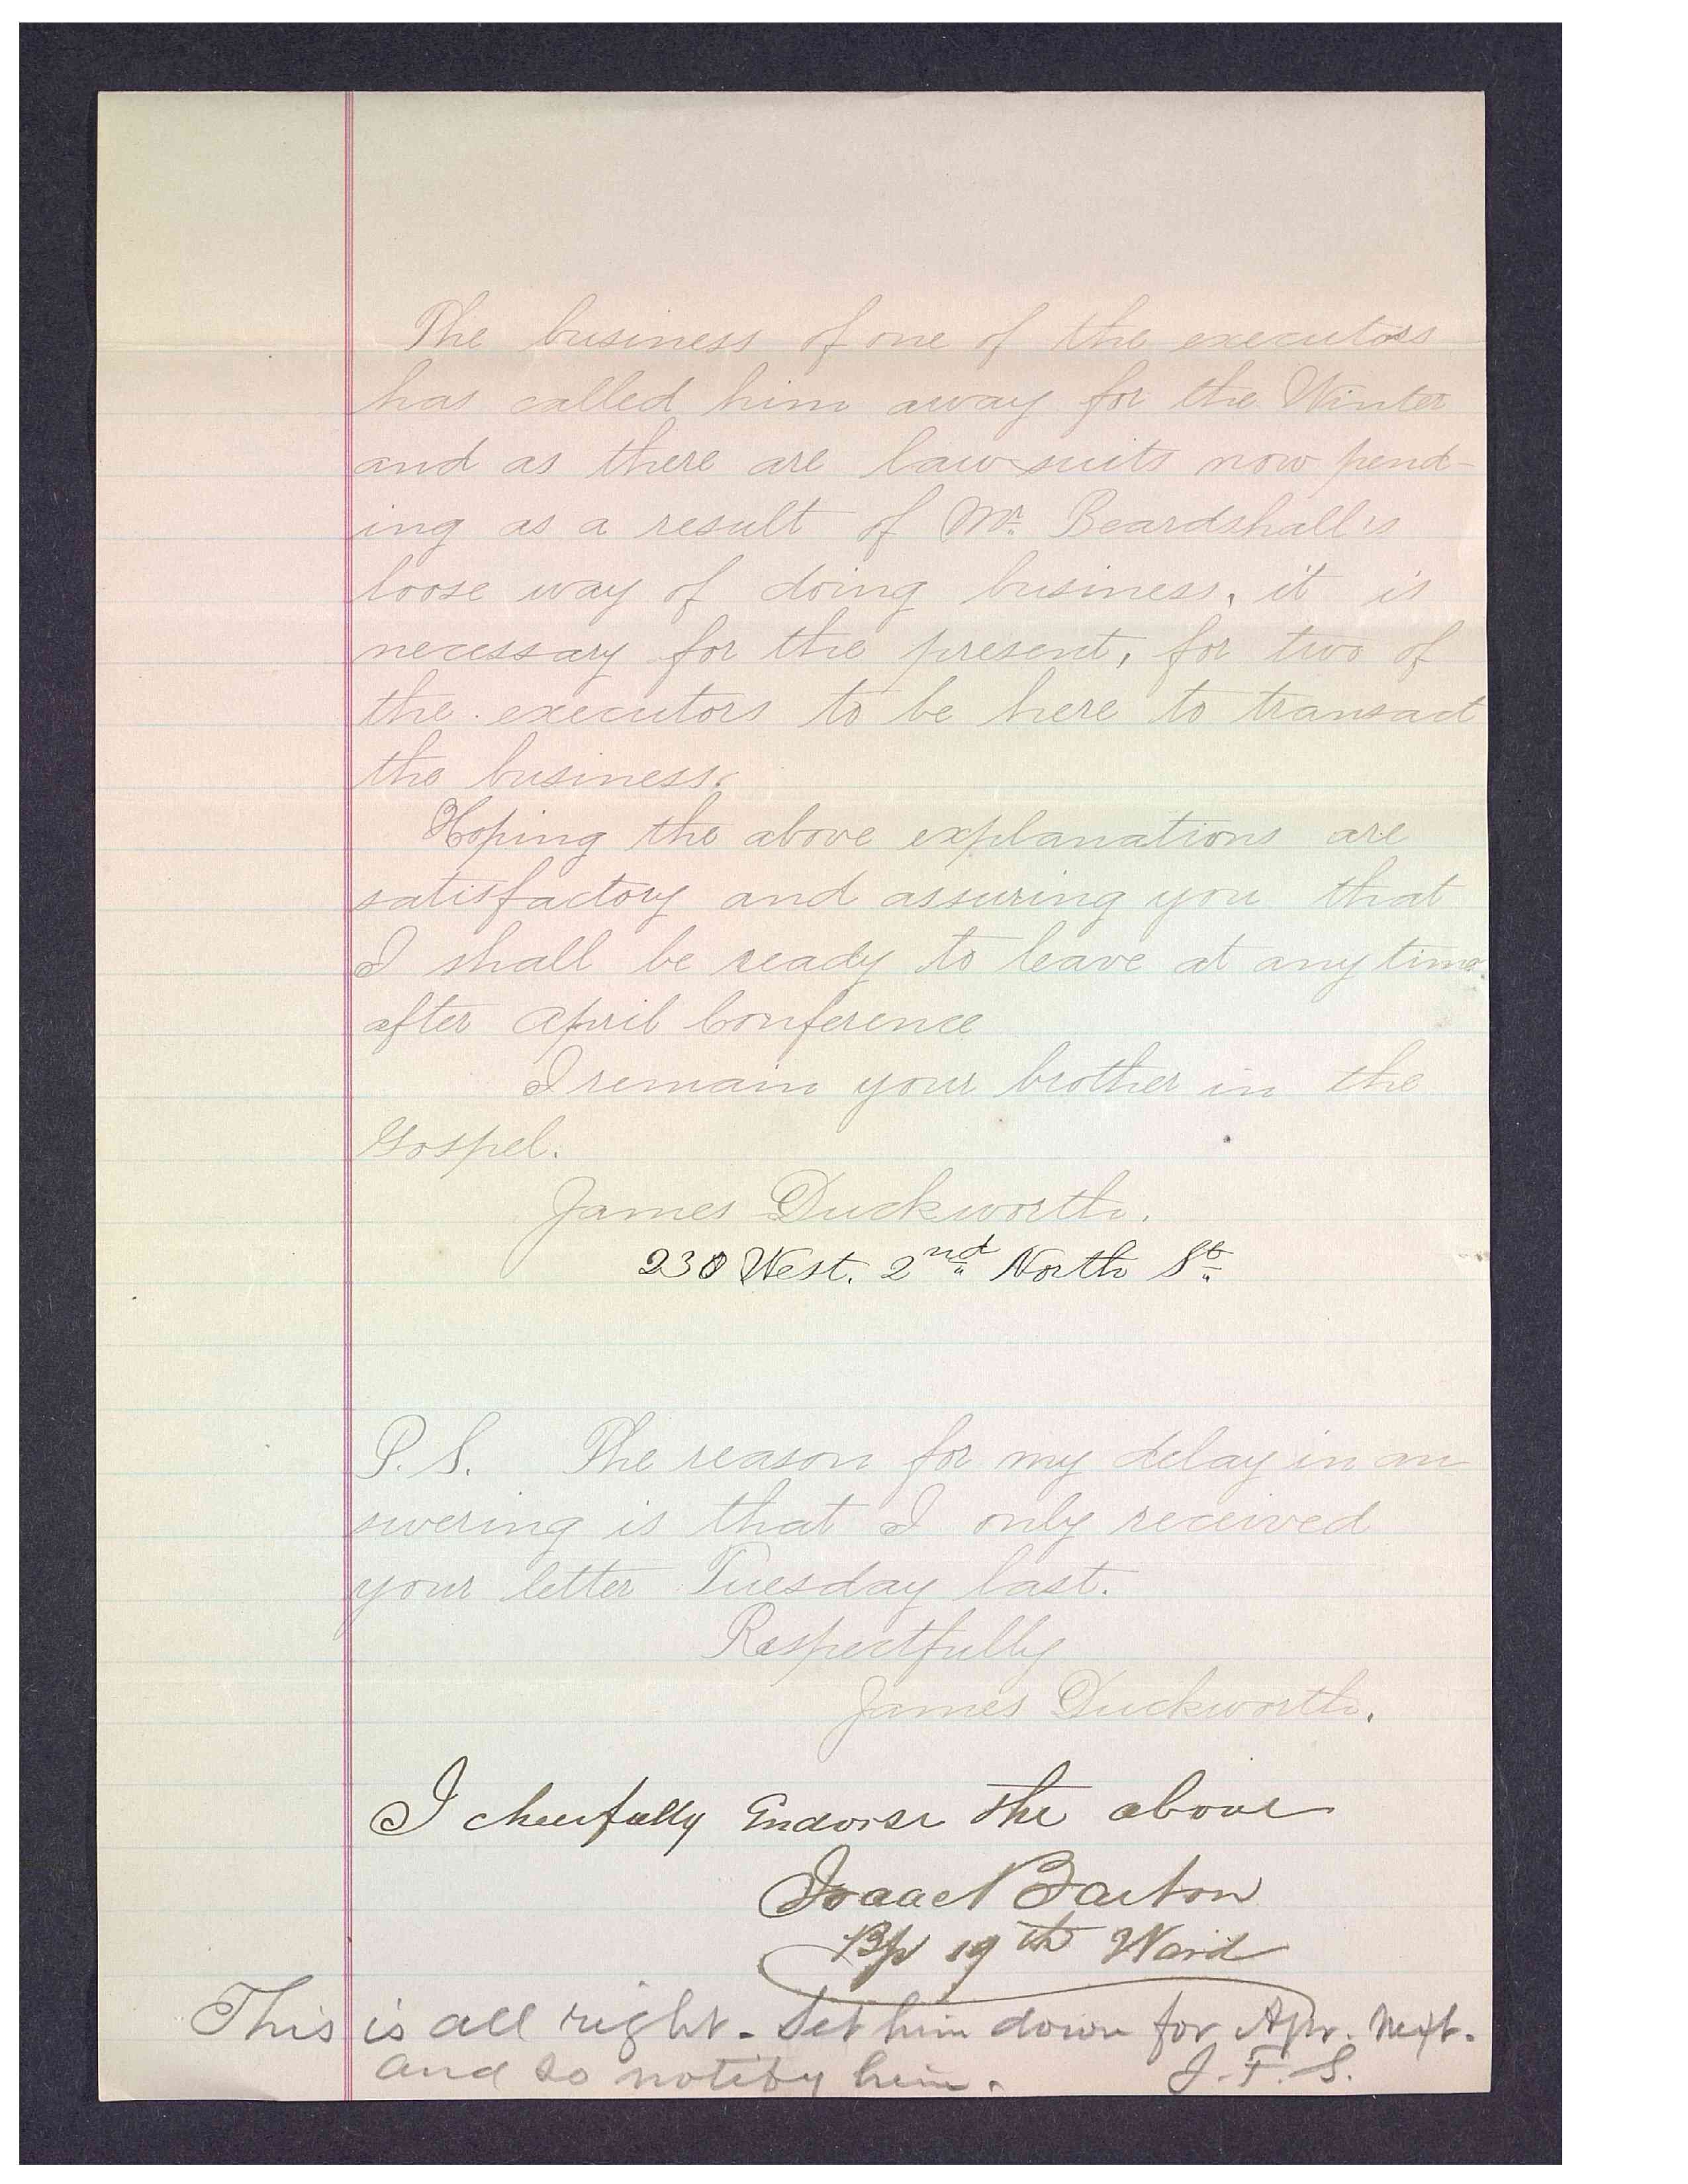 The business of one of the executors
has called him away for the Winter
and as there are lawsuits now pend-
ing as a result of Mr. Beardshall's
loose way of doing business, it is
necessary for the present, for two of
the executors to be here to transact
the business.
Hoping the above explanations are
satisfactory and assuring you that
I shall be ready to leave at any time
after April Conference
I remain your brother in the
Gospel.
James Duckworth.
230 West. 2nd North St.
P.S. The reason for my delay in an
swering is that I only received
your letter Tuesday last.
Respectfully
James Duckworth.
I cheerfully Endorse the above
Isaac Barton
Bp 19th Ward
This is all right. Set him down for Apr. next.
and so notify him. J.F.S.